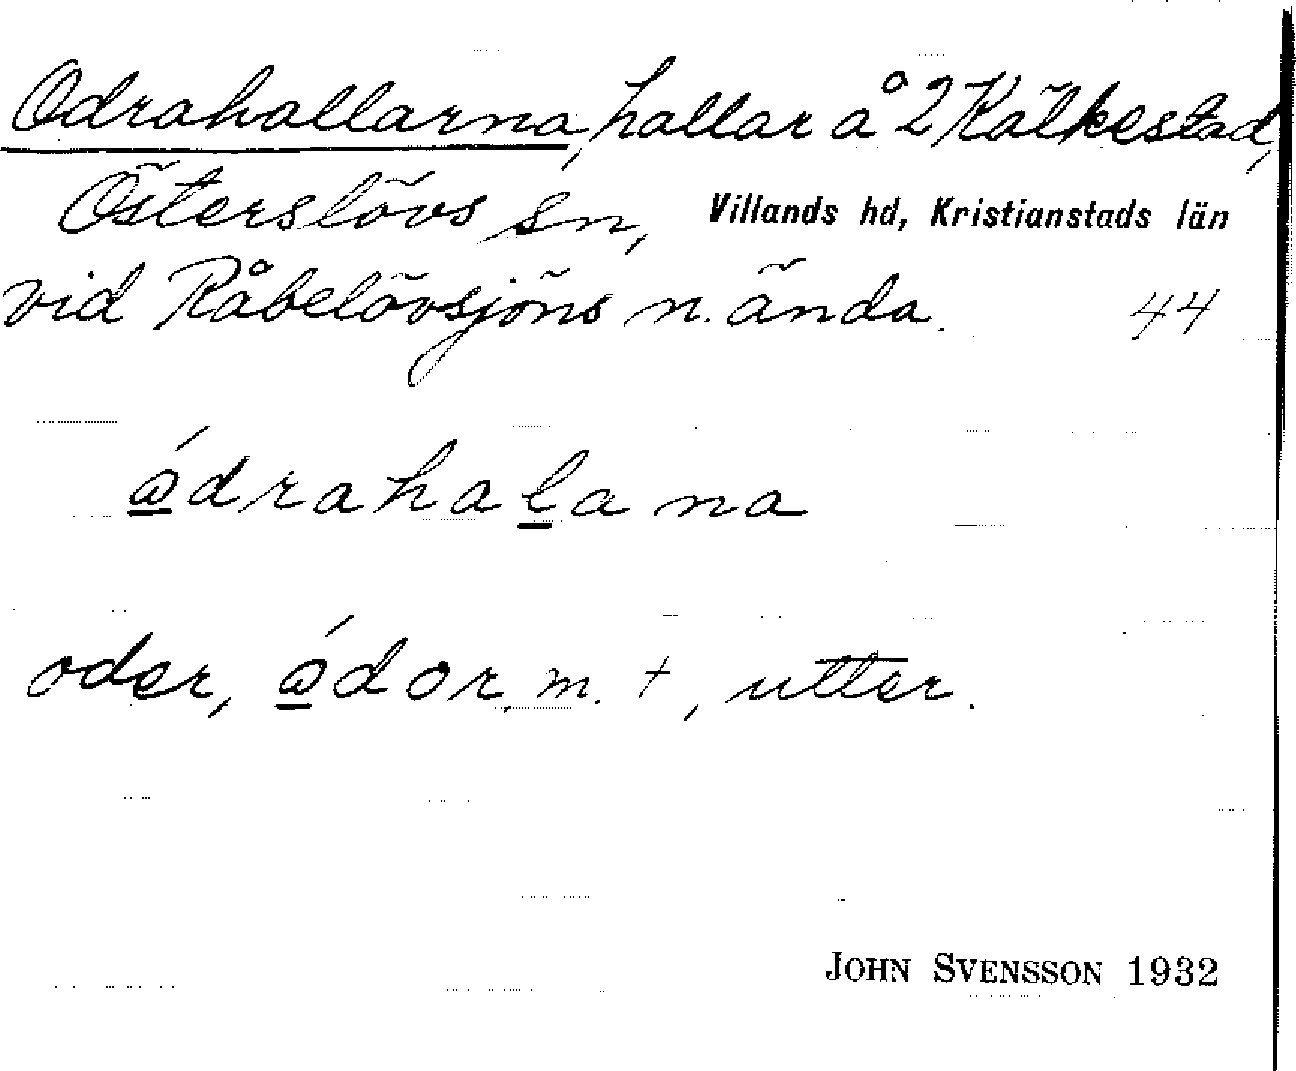 Odrahallarna, hallar å 2 Kälkestad,
Österslövs sn, Villands hd, Kristianstads län
vid Råbelövsjöns n. ända. 44
ádrahalana
oder, ádor, m. +, utter.
JOHN SVENSSON 1932